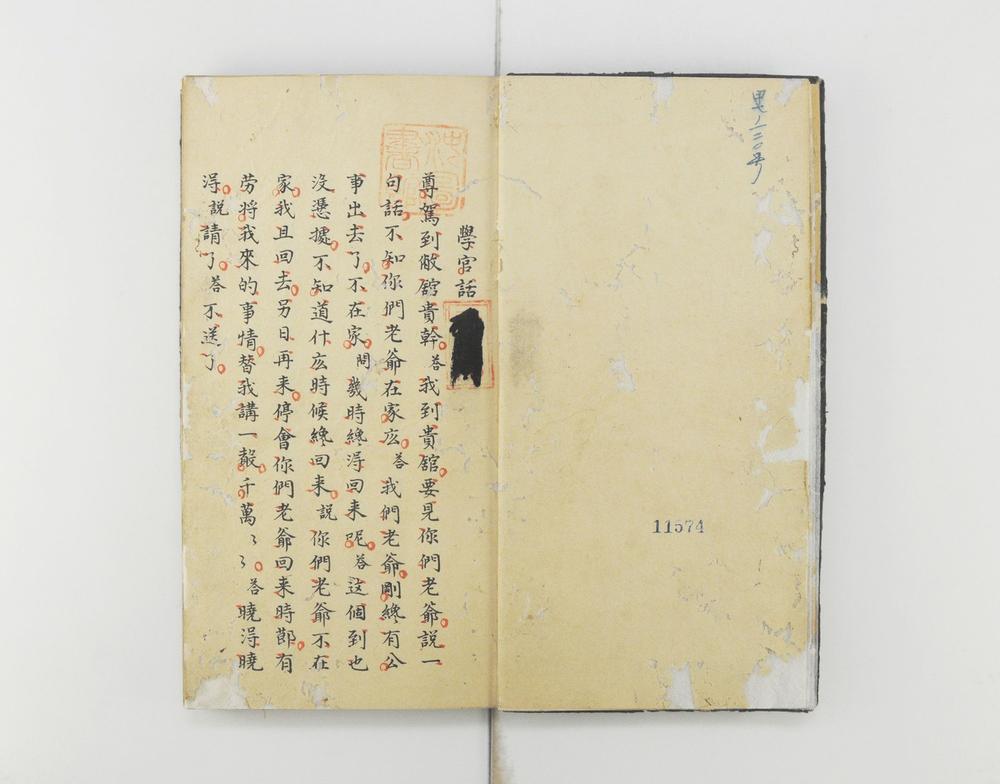 11574
學官話
尊駕到敝舘貴幹答我到貴舘要見你們老爺說一
句話不知你們老爺在家庅答我們老爺剛纔有公
事出去了不在家問幾時纔淂回来呢答這個到也
没憑據不知道什庅時候纔回来說你們老爺不在
家我且回去另日再来停會你們老爺回来時郎有
劳将我來的事情替我講一聲千萬〻〻答曉淂曉
淂說請了答不送了